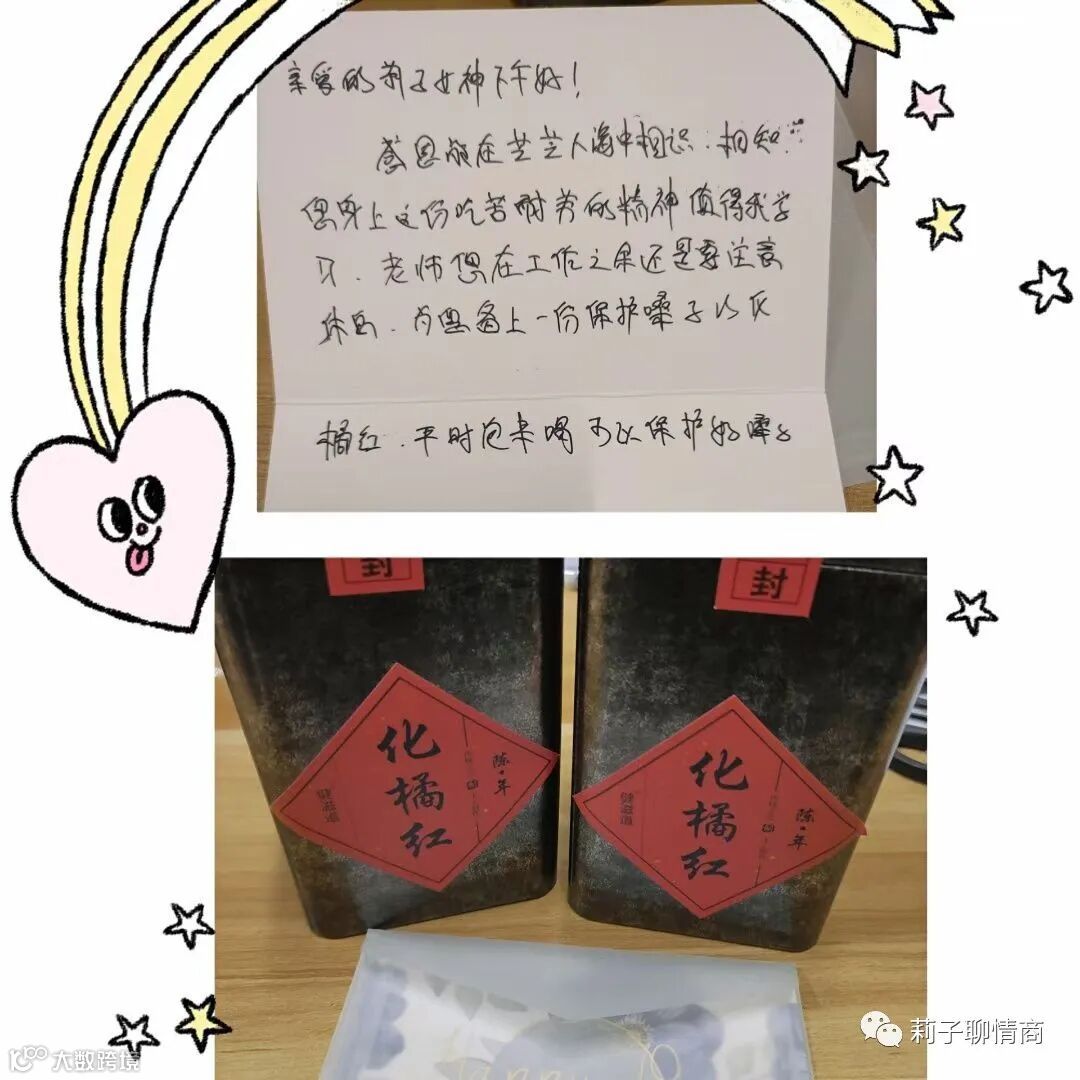 亲爱的莉子女神下午好！
感恩能在茫茫人海中相识、相知
您身上这份吃苦耐劳的精神值得我学
习、老师您在工作之余还是要注意
休息、为您备上一份保护嗓子
橘红、平时泡来喝可以保护好嗓子
封
封
化橘红
陈·年
健滋道
化橘红
陈·年
健滋道
莉子聊情商
大数跨境